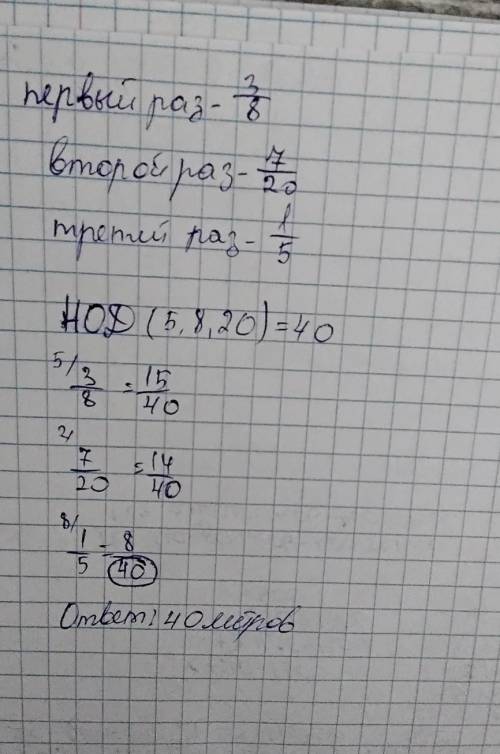 первый раз - 3/8
второй раз - 7/20
третий раз - 1/5
НОД (5, 8, 20) = 40
5/ 3/8 = 15/40
2/ 7/20 = 14/40
8/ 1/5 = 8/40
Ответ: 40 метров